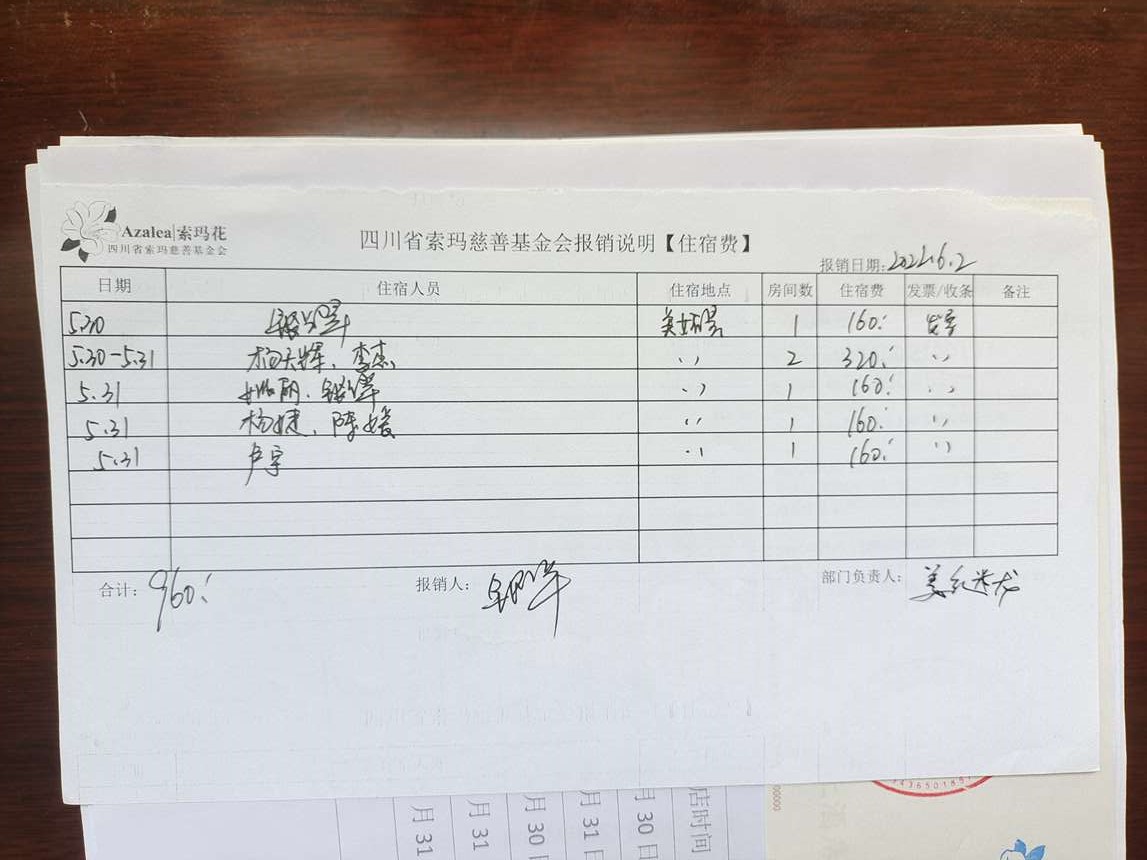 Azalea|索玛花
四川省索玛慈善基金会
四川省索玛慈善基金会报销说明【住宿费】
报销日期:2022.6.2
日期 住宿人员 住宿地点 房间数 住宿费 发票/收条 备注
5.30 1 160.
5.30-5.31 杨天辉、李杰 〃 2 320. 〃
5.31 〃 1 160. 〃
5.31 杨婕、陈媛 〃 1 160. 〃
5.31 卢宇 〃 1 160. 〃
合计: 960. 报销人: 部门负责人:
店时间
月 30 日
月 31 日
月 30 日
月 31
月 31